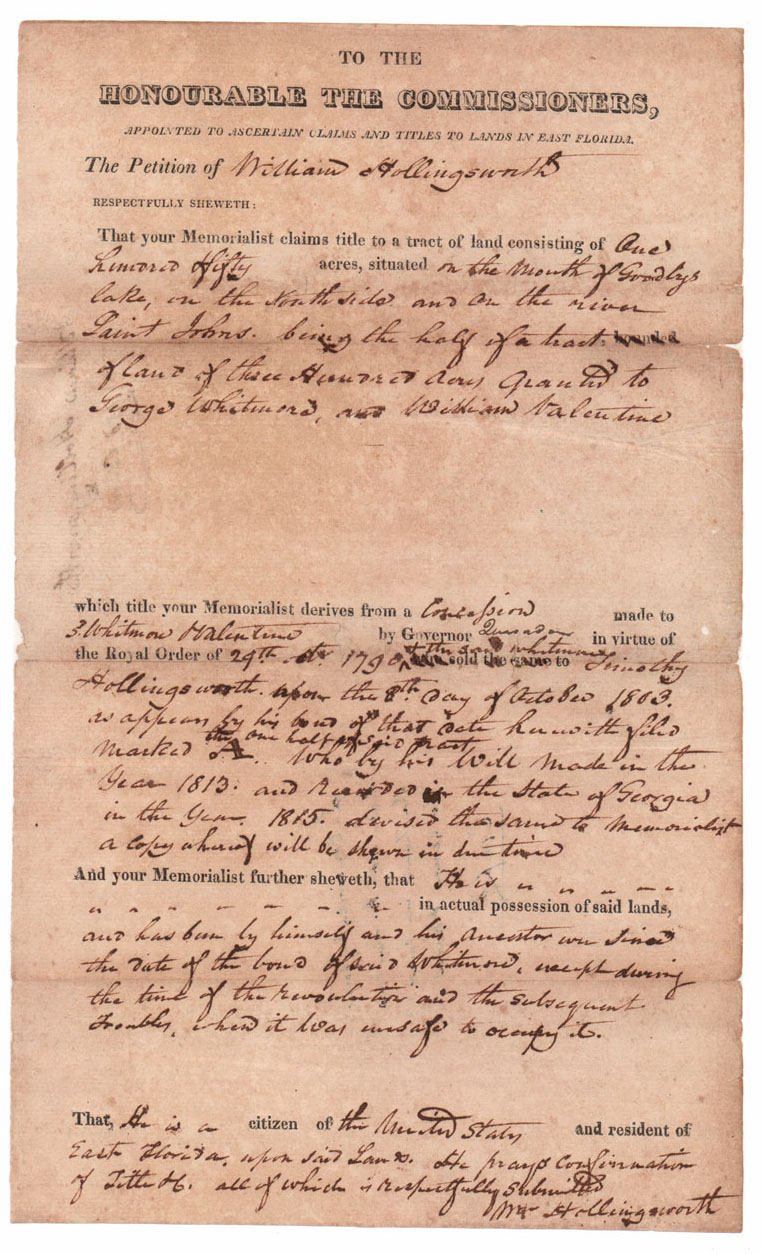 TO THE
HONOURABLE THE COMMISSIONERS,
APPOINTED TO ASCERTAIN CLAIMS AND TITLES TO LANDS IN EAST FLORIDA.
The Petition of William Hollingsworth
RESPECTFULLY SHEWETH:
That your Memorialist claims title to a tract of land consisting of One
hundred & fifty acres, situated on the Mouth of Goodbys
lake, on the North side and on the river
Saint Johns. being the half of a tract bounded
of land of three Hundred Acres Granted to
George Whitmore, and William Valentine
which title your Memorialist derives from a Concession made to
Whitmore Valentine by Governor Quesada in virtue of
the Royal Order of 29th 1790 & the said Whitmore sold the same to Timothy
Hollingsworth upon the 8th day of October 1803.
as appears by his bond of that date herewith filed
the One half of said tract
marked A. Who by his Will made in the
Year 1813. and Recorded in the State of Georgia
in the Year. 1815. devised the same to Memorialist
a copy whereof will be shewn in due time
And your Memorialist further sheweth, that He is
in actual possession of said lands,
and has been by himself and his Ancestor ever Since
the date of the bond of said Whitmore, except during
the time of the revolution and the subsequent
Troubles, when it was unsafe to occupy it.
That, He is a citizen of the United States and resident of
East Florida, upon said Lands. He prays Confirmation
of Title &c. all of which is respectfully Submitted
Wm Hollingsworth